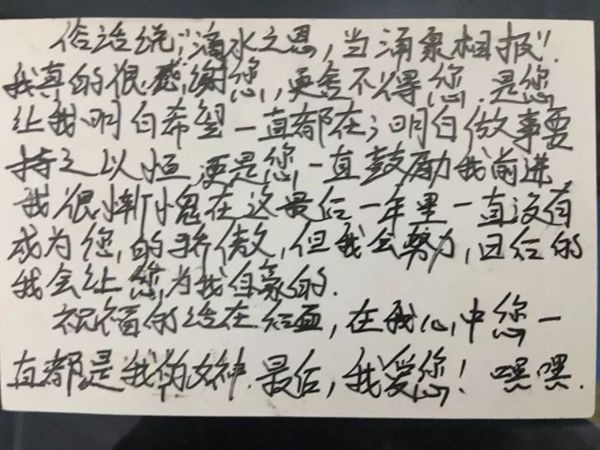 俗话说:"滴水之恩,当涌泉相报"!
我真的很感谢您,更舍不得您.是您
让我明白希望一直都在;明白做事要
持之以恒更是您,一直鼓励我前进
我很惭愧在这最后一年里一直没有
成为您,的骄傲,但我会努力,以后的
我会让您,为我自豪的.
祝福的话在后面,在我心中您一
直都是我的女神.最后,我爱您!嘿嘿.